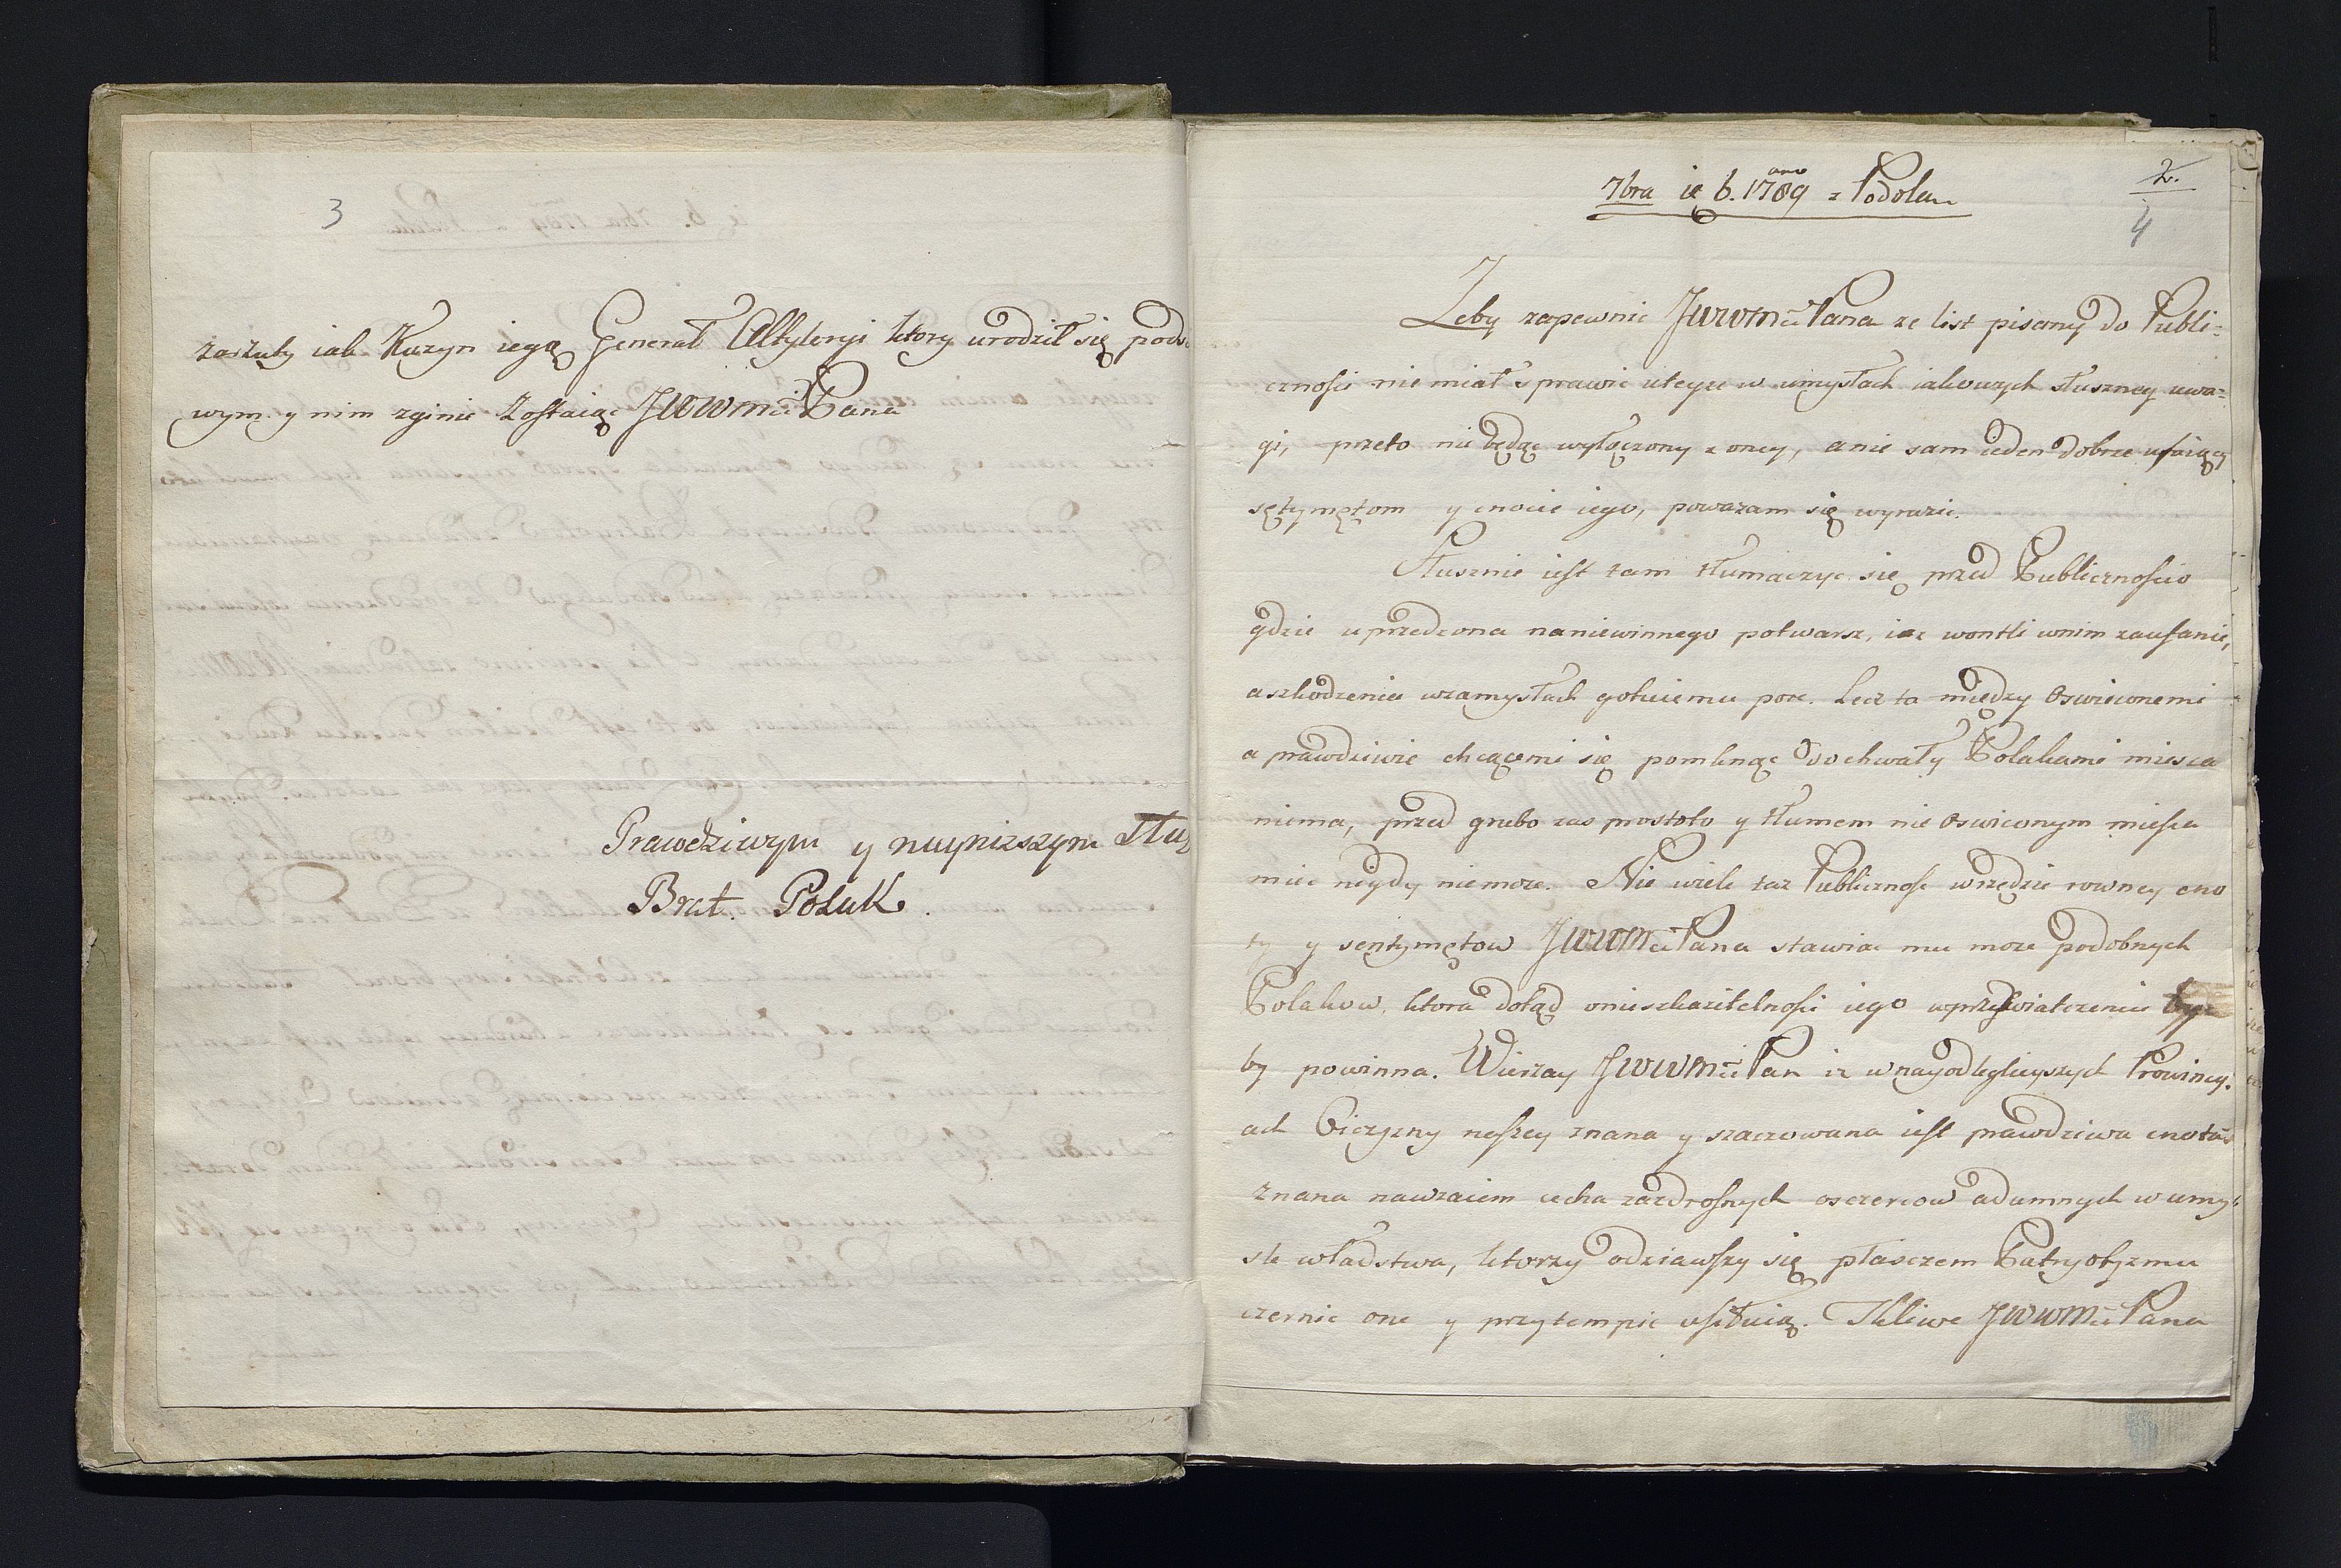 3
zarzuty iak Kuzyn iego Generał Altyleryi ktory urodził się pods
wym y nim zginie zostaiąc JWWMci Pana
Prawdziwym y nayniższym Słu
Brat. Polak.
2.
4
7bra ię 6. 1789 ano z Podola
Zeby zapewnic JWWMci Pana ze list pisany do Publi=
cznosci nie miał sprawic uteyze w umysłach iakowych słuszney uwa=
gi, przeto nie będąc wyłączony z oney, a nie sam ieden dobrze ufaiący
sętymętom y cnocie iego, powazam się wyrazic.
Słusznie iest tam tłumaczyc się przed Publicznoscio
gdzie uprzedzona na niewinnego potwarz, iuz wontli wnim zaufanie,
a szkodzenia wzamysłach gotuiemu pore. Lecz to między Oswieconemi
a prawdziwie chcącemi się pomknąc do chwały Polakami miesca
niema, przed grubo zas prostoto y tłumem nie oswieconym miesca
miec nigdy niemoze. Nie wiele taz Publicznosc wrzędzie rowney cno
ty y sentymętow JWWMci Pana stawiac mu moze podobnych
Polakow, ktora dotąd onieskazitelnosci iego wprzeswiatczeniu
by powinna. Wierzay JWWMci Pan iz w nayodlegleyszych Prowincy.
ach Oiczyzny naszey znana y szacowana iest prawdziwa cnota
znana nawzaiem cecha zazdrosnych oszczercow adumnych w umy
sle władstwa, ktorzy odziawszy się płasczem Patryotyzmu
czernic one y przytempic usiłuią. Tkliwe JWWMci Pana